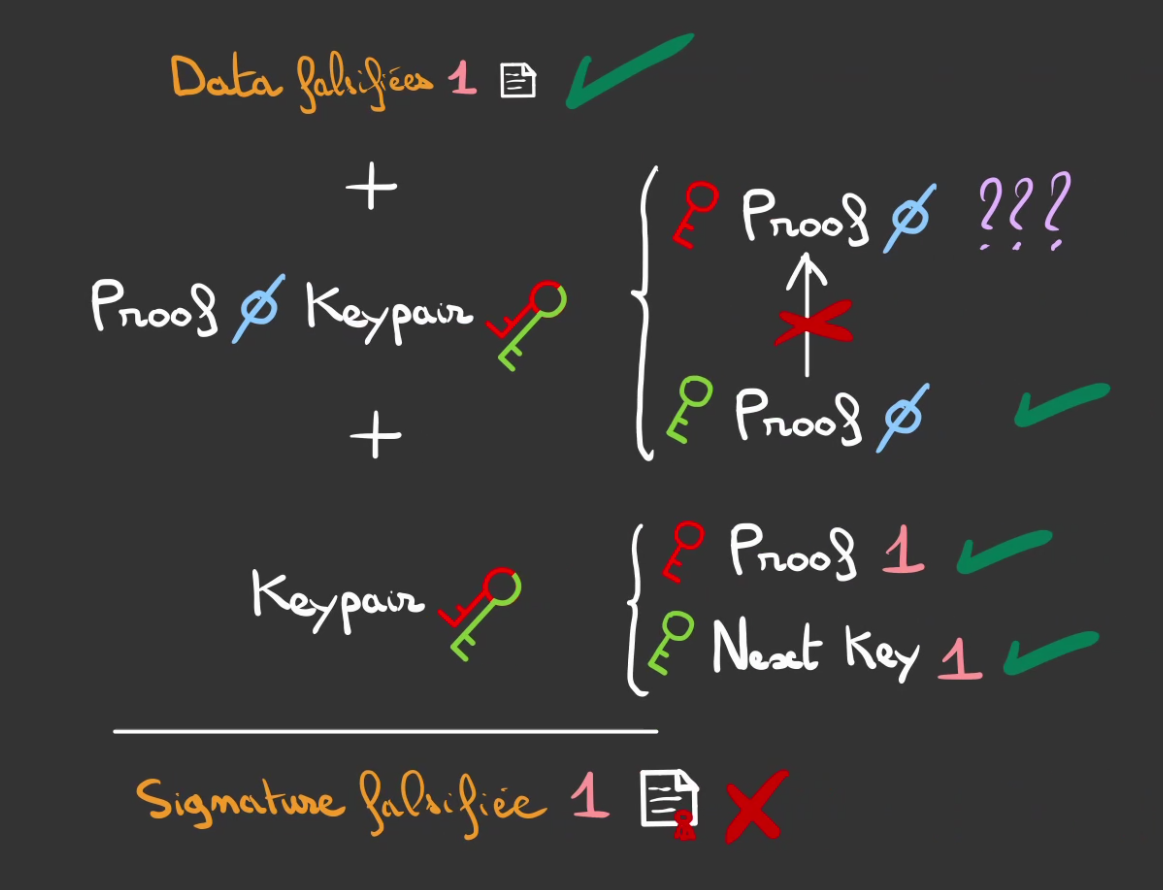 Data falsifiées 1
+
Proof ø Keypair
Proof ø ???
Proof ø
+
Keypair
Proof 1
Next Key 1
Signature falsifiée 1